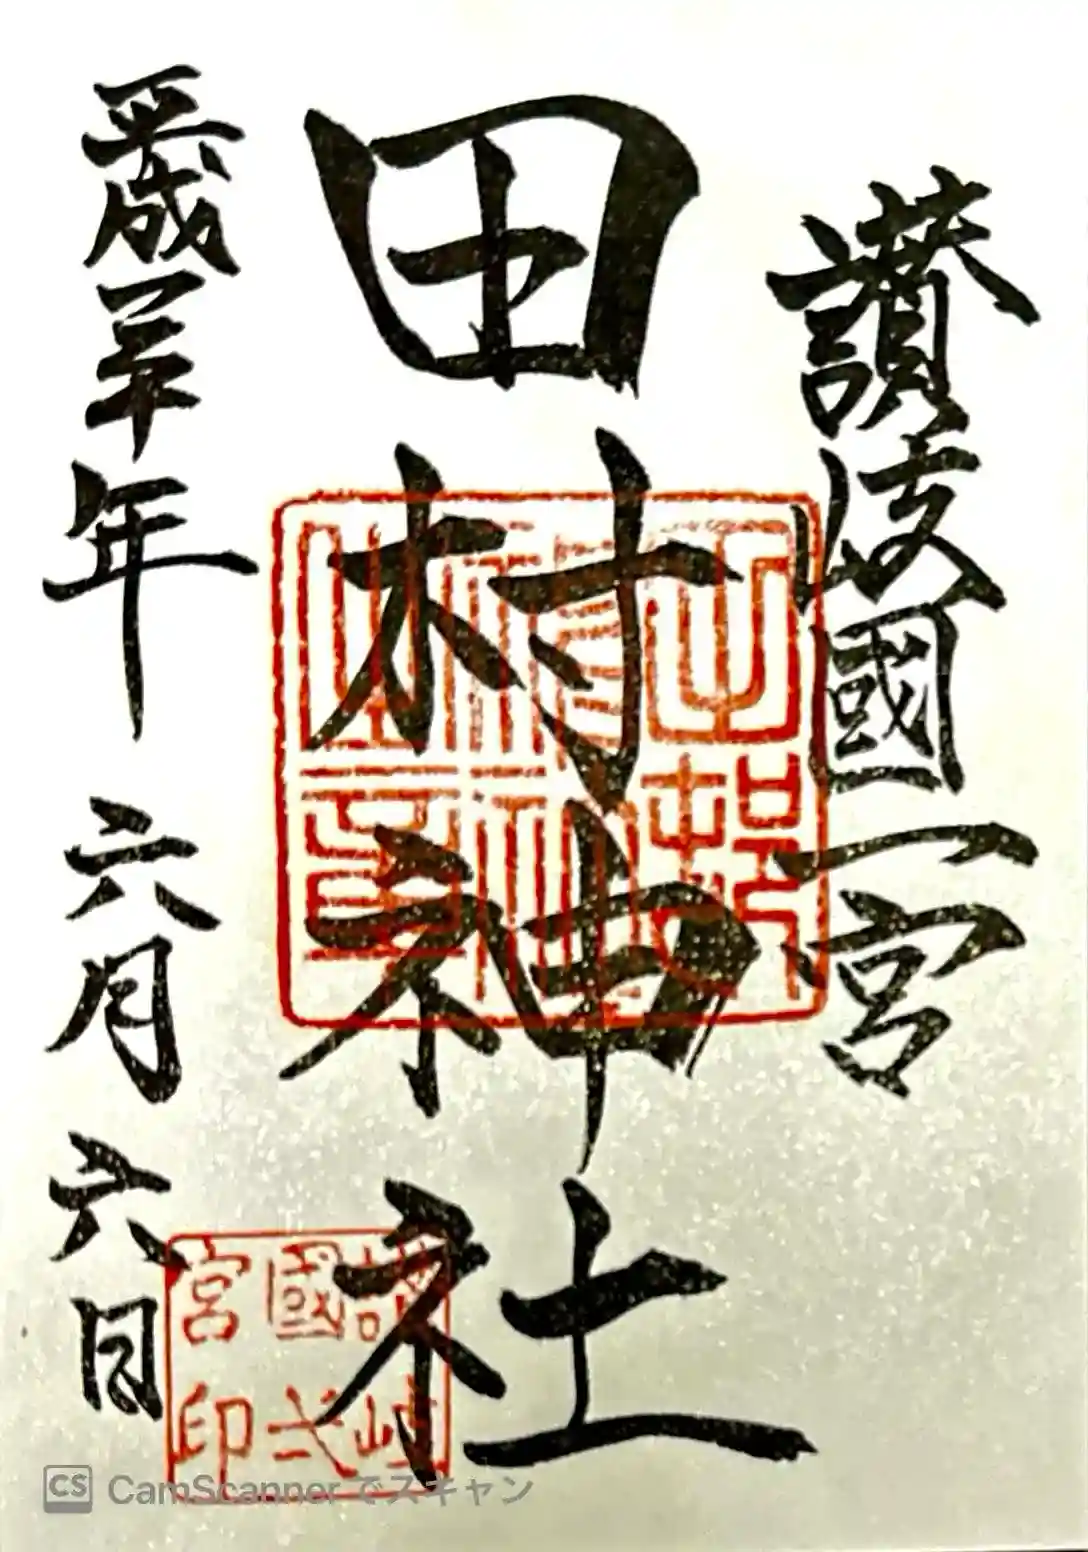 讃岐國一宮
田村神社
平成三十年六月六日
讃岐
國弌
宮印
CS CamScannerでスキャン